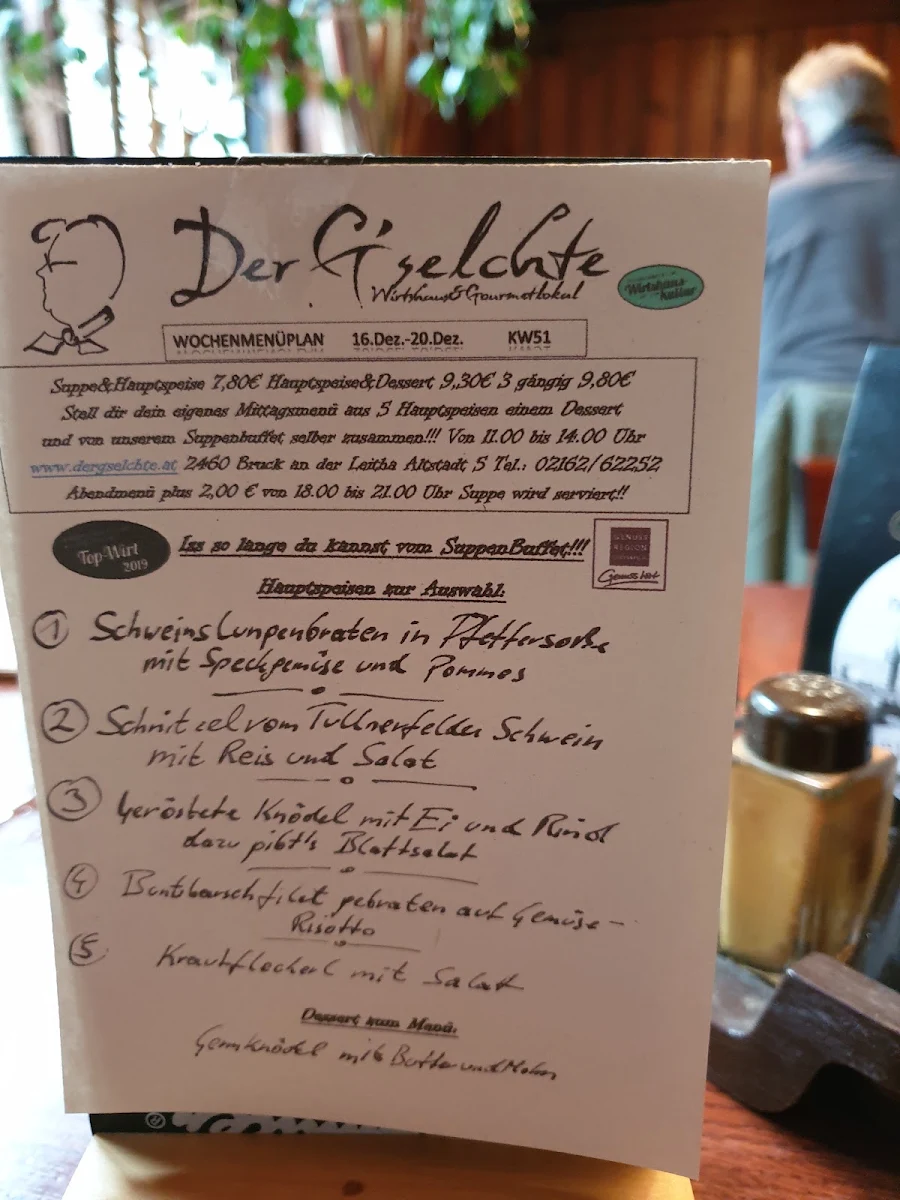 Der G'selchte
Wirtshaus&Gourmetlokal
Wirtshaus-
Kultur
WOCHENMENÜPLAN 16.Dez.-20.Dez. KW51
Suppe&Hauptspeise 7,80€ Hauptspeise&Dessert 9,,30€ 3 gängig 9,80€
Stell dir dein eigenes Mittagsmenü aus 5 Hauptspeisen einem Dessert
und von unserem Suppenbuffet selber zusammen!!! Von 11.00 bis 14.00 Uhr
www.dergselchte.at 2460 Bruck an der Leitha Altstadt 5 Tel.: 02162/62252
Abendmenü plus 2,00 € von 18.00 bis 21.00 Uhr Suppe wird serviert!!
Top-Wirt
2019
Iss so lange du kannst vom SuppenBuffet!!!
GENUSS
REGION
Genuss Wirt
Hauptspeisen zur Auswahl:
1 Schweinslungenbraten in Pfeffersoße
mit Speckgemüse und Pommes
2 Schnitzel vom Tullnerfelder Schwein
mit Reis und Salat
3 Geröstete Knödel mit Ei und Rind
dazu gibt's Blattsalat
4 Buntbarschfilet gebraten auf Gemüse-
Risotto
5 Krautfleckerl mit Salat
Dessert zum Menü:
Germknödel mit Butter und Mohn